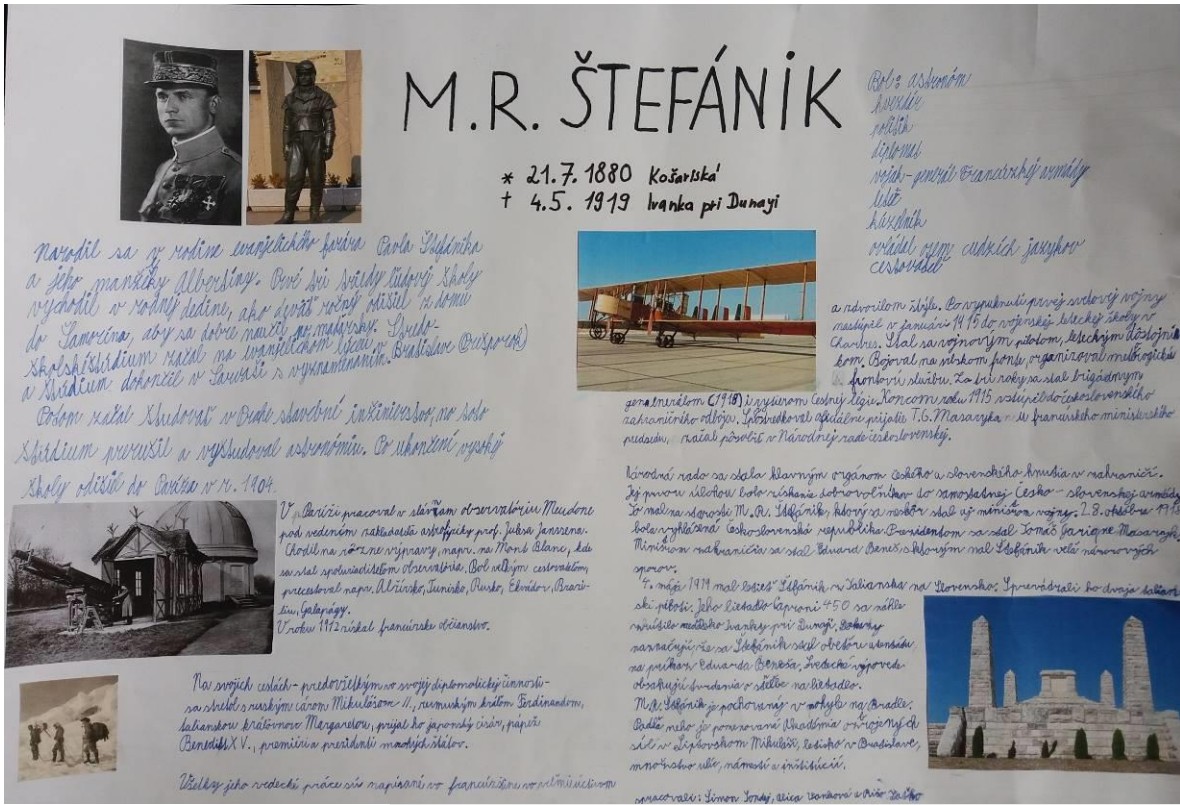 M.R. ŠTEFÁNIK
* 21.7.1880 Košariská
† 4.5.1919 Ivanka pri Dunaji
Bol: astronóm
hvezdár
politik
diplomat
vojak-generál Francúzskej armády
letec
ovládal osem cudzích jazykov
cestovateľ
Narodil sa v rodine evanjelického farára Pavla Štefánika
a jeho manželky Albertíny. Prvé tri triedy ľudovej školy
vychodil v rodnej dedine, ako deväť ročný odišiel z domu
do Šamorína, aby sa dobre naučil po maďarsky. Stredo-
školské štúdium začal na evanjelickom lýceu v Bratislave (Prešporok)
a štúdium dokončil v Sarvaši s vyznamenaním.
Potom začal študovať v Prahe stavebné inžinierstvo, no toto
štúdium prerušil a vyštudoval astronómiu. Po ukončení vysokej
školy odišiel do Paríža v r. 1904.
V Paríži pracoval v slávnom observatóriu Meudone
pod vedením zakladateľa astrofyziky prof. Julesa Janssena.
Chodil na rôzne výpravy, napr. na Mont Blanc, kde
sa stal spoluriaditeľom observatória. Bol veľkým cestovateľom,
precestoval napr. Alžírsko, Tunisko, Rusko, Ekvádor, Brazí-
liu, Galapágy.
V roku 1912 získal francúzske občianstvo.
Na svojich cestách - predovšetkým vo svojej diplomatickej činnosti -
sa stretol s ruským cárom Mikulášom II., rumunským kráľom Ferdinandom,
talianskou kráľovnou Margaretou, prijal ho japonský cisár, pápež
Benedikt XV., premiéri a prezidenti mnohých štátov.
Všetky jeho vedecké práce sú napísané vo francúzštine vo
a zdvorilom štýle. Po vypuknutí prvej svetovej vojny
nastúpil v januári 1915 do vojenskej leteckej školy v
Chartres. Stal sa vojnovým pilotom, leteckým dôstojní-
kom. Bojoval na srbskom fronte, organizoval
frontovú službu. Za tri roky sa stal brigádnym
generálom (1918) i rytierom Čestnej légie. Koncom roku 1915 vstúpil do československého
zahraničného odboja. Sprostredkoval oficiálne prijatie T.G. Masaryka u francúzskeho ministerského
predsedu, začal pôsobiť v Národnej rade československej.
Národná rada sa stala hlavným orgánom českého a slovenského hnutia v zahraničí.
Jej prvou úlohou bolo získanie dobrovoľníkov do samostatnej Česko-slovenskej armády.
To mal na starosti M.R. Štefánik, ktorý sa neskôr stal aj ministrom vojny. 28. októbra 1918
bola vyhlásená Československá republika. Prezidentom sa stal Tomáš Garigue Masaryk.
Ministrom zahraničia sa stal Eduard Beneš, s ktorým mal Štefánik veľa názorových
sporov.
4. mája 1919 mal letieť Štefánik z Talianska na Slovensko. Sprevádzali ho dvaja talian-
ski piloti. Jeho lietadlo Caproni 450 sa náhle
zrútilo neďaleko Ivanky pri Dunaji.
naznačujú, že sa Štefánik stal obeťou atentátu
na príkaz Eduarda Beneša. Svedecké výpovede
obsahujú tvrdenia o streľbe na lietadlo.
M.R. Štefánik je pochovaný v mohyle na Bradle.
Podľa neho je pomenovaná Akadémia ozbrojených
síl v Liptovskom Mikuláši, letisko v Bratislave,
množstvo ulíc, námestí a inštitúcií.
spracovali: Simon